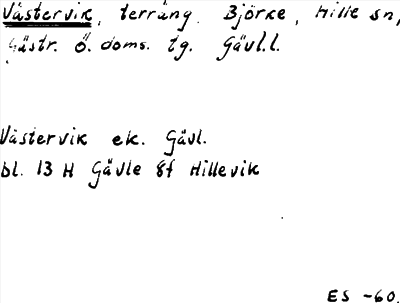 Västervik, terräng. Björke, Hille sn,
Gästr. ö. doms. tg. Gävl.l.
Västervik ek. Gävl.
bl. 13 H Gävle 8f Hillevik
ES -60.